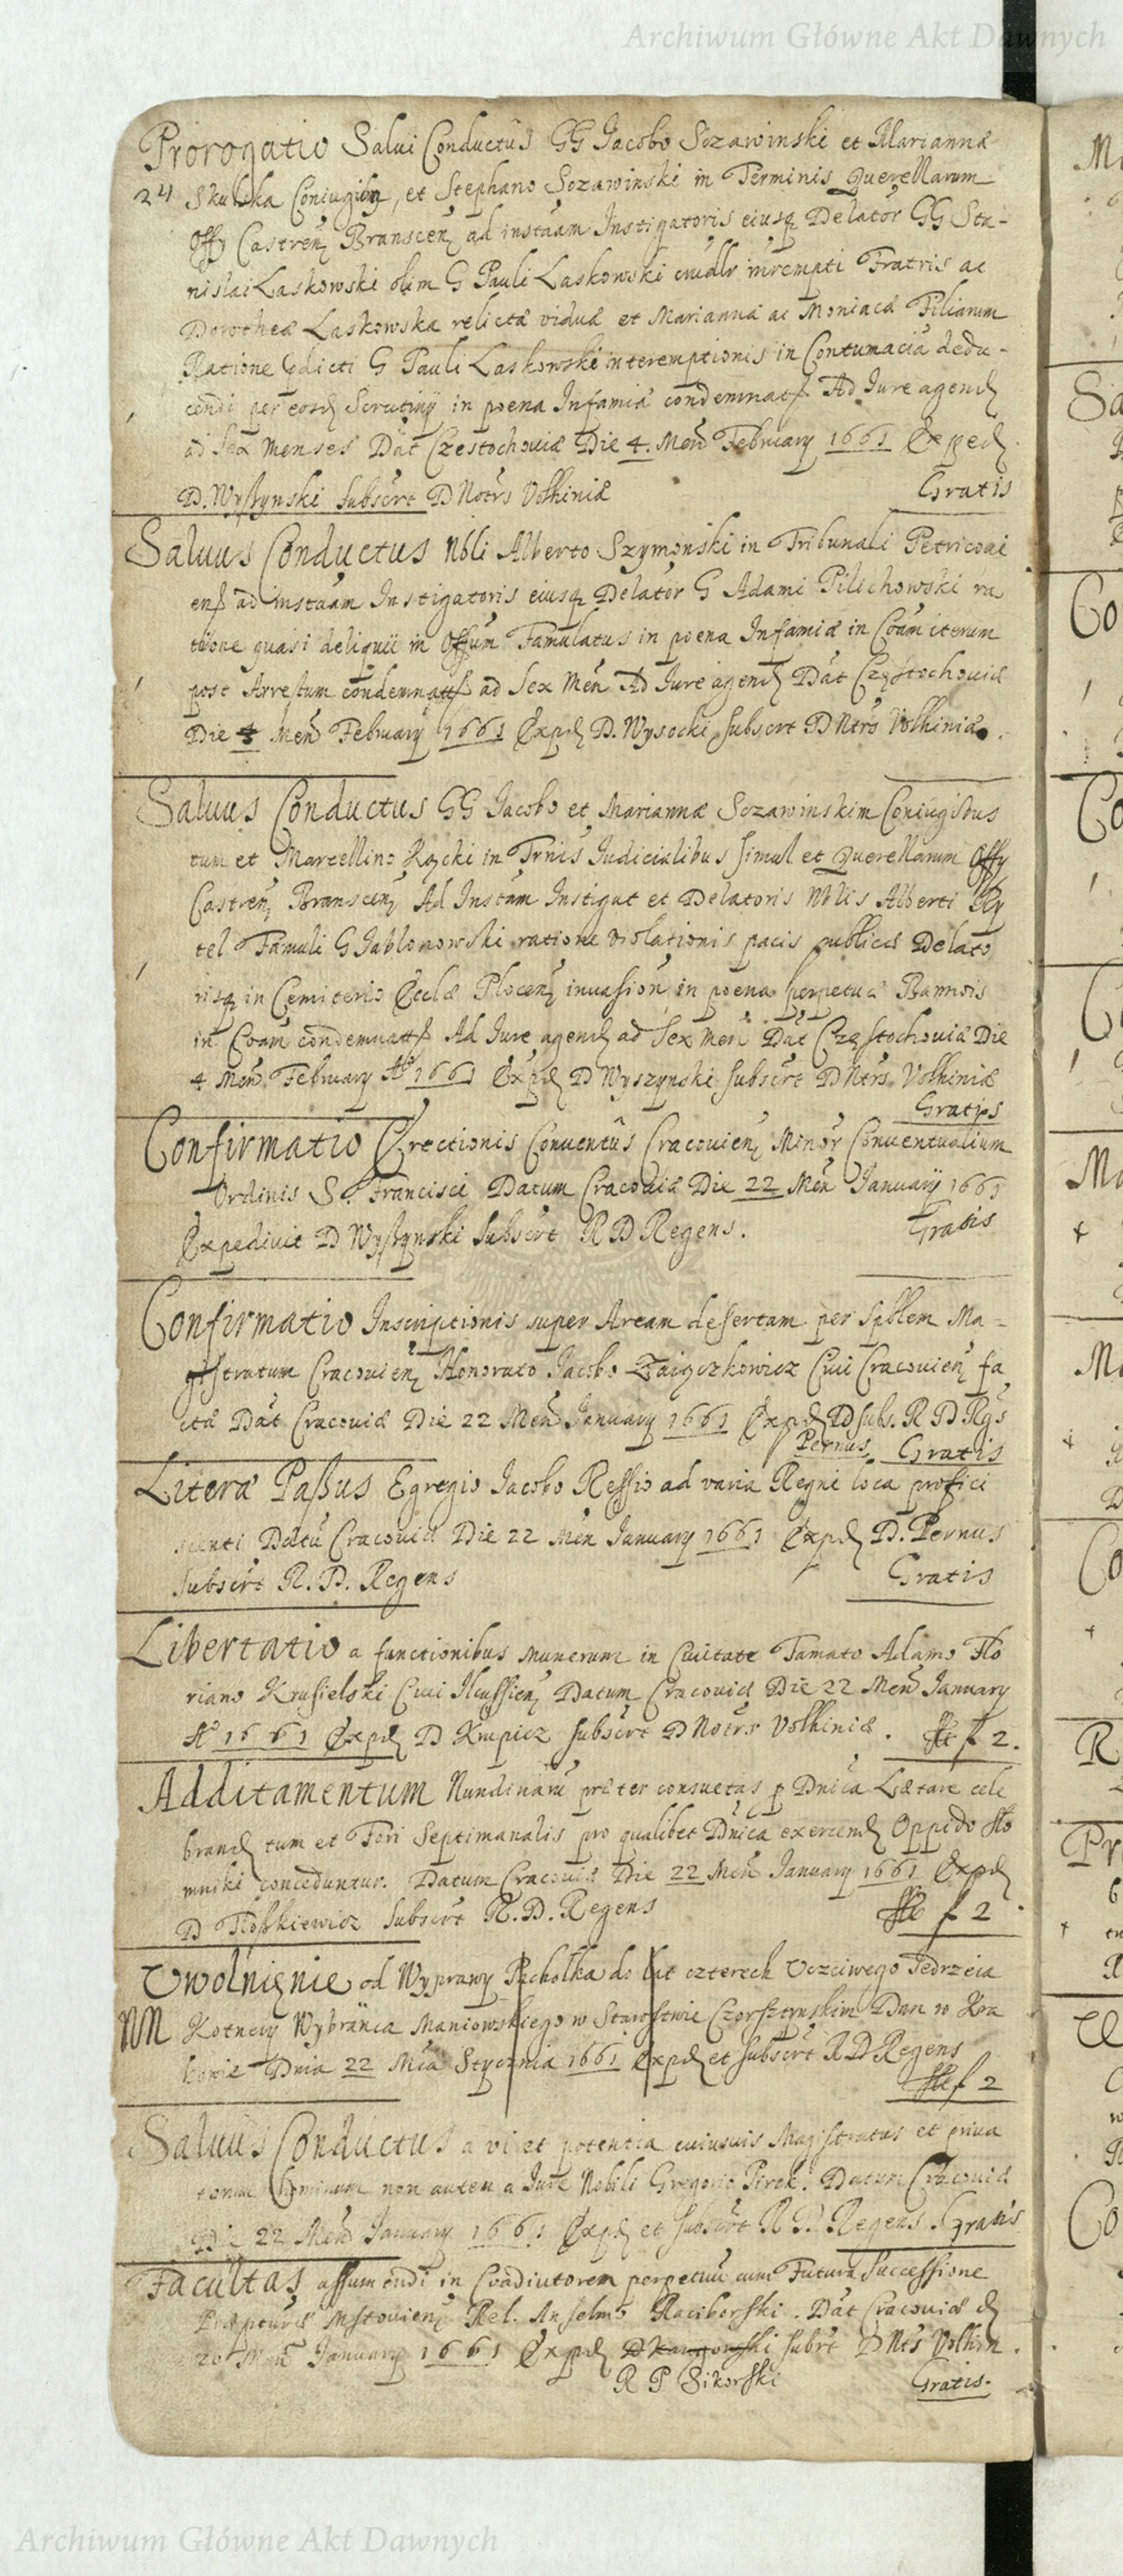 Archiwum Główne Akt Dawnych
Prorogatio Salui Conductûs GG Jacobo Sczawinski et Mariannæ
24 Skulska Coniugibq, et Stephano Sczawinski in Terminis Querellarum
Offy Castren Branscen ad instãam Instigatoris eiusq Delator GG Sta-
nislai Laskowski olim G Pauli Laskowski interempti Fratris ac
Dorotheæ Laskowska relictæ viduæ et Mariannæ ac Filiarum
Ratione G Pauli Laskowski interemptionis in Contumaciã dedu-
cendi per eosd Scrutiny in poena Infamiæ condemnat Ad Jure agend
ad Sex Menses Dat Czestochouiæ Die 4. Men February 1661 Exped
D. Wyszynski subscrt D Notrs Volhiniæ Gratis
Saluus Conductus Nbli Alberto Szymonski in Tribunali Petricoui
ens ad instãam Instigatoris eiusq Delator G Adami Pilichowski ra
tione quasi deliquii in Offum Famulatus in poena Infamiæ in Coam iterum
post Arrestum condemnatt ad Sex Men Ad Jure agend Dat Częstochouiæ
Die 4 Men February 1661 Expd D. Wysocki subscrt D Ntrs Volhiniæ.
Saluus Conductus GG Jacobo et Mariannæ Sczawinskim Coniugibus
tum et Marcellino Rącki in Trnis Judicialibus simul et Querellarum Offy
Castren Branscen Ad Instam Instigat et Delatoris Nblis Alberti
tel Famuli G Jablonowski ratione violationis pacis publicæ Delato
risq in Cemiterio Ecclæ Plocen invasion in poena perpetuæ Bannois
in Coam condemnatt Ad Jure agend ad Sex Men Dat Częstochouiæ Die
4 Men February Ao 1661 Expd D Wyszynski subscrt D Ntrs Volhiniæ
Gratis
Confirmatio Erectionis Conuentûs Cracouien Minor Conuentualium
Ordinis S. Francisci Datum Cracouiæ Die 22 Men January 1661
Expediuit D Wyszynski subscrt R D Regens. Gratis
Confirmatio Inscriptionis super Aream desertam per Spblem Ma-
gistratum Cracouien Honorato Jacobo Zaiączkowicz Ciui Cracouien fa
ctæ Dat Cracouiæ Die 22 Men January 1661 Expd D subs. R D Rgs
Pernus Gratis
Literæ Passus Egregio Jacobo Ressio ad varia Regni loca profici
scenti Datu Cracouiæ Die 22 Men January 1661 Expd D. Pernus
subscrt R. D. Regens Gratis
Libertatio a functionibus munerum in Ciuitate Famato Adamo Flo
riano Krusielski Ciui Ilcussien Datum Cracouiæ Die 22 Men January
Ao 1661 Expd D Krupicz subscrt D Notrs Volhiniæ. f 2.
Additamentum Nundinarũ præter consuetas p Dnica Lætare cele
brand tum et Fori Septimanalis pro qualibet Dnica exercend Oppido Sło
mniki conceduntur. Datum Cracouiæ Die 22 Men January 1661 Expd
D subscrt R. D. Regens f 2
Uwolnięnie od Wyprawy Pachołka do lat czterech Uczciwego Jedrzeia
NN Kotnety Wybrãnca Maniowskiego w Starostwie Czorsztynskim Dan w Kra
kowie Dnia 22 Mca Stycznia 1661 Expd et subscrt R D Regens
f 2
Saluus Conductus a vi et potentia cuiusuis Magistratus et priua
torum hominum non autem a Jure Nobili Gregorio Pirek. Datum Cracouiæ
Die 22 Men January 1661 Expd et subscrt R D. Regens. Gratis
Facultas assumendi in Coadiutorem perpetuũ cum Futura Successione
Præpturæ Mstouien Rel. Anselmo Raciborski. Dat Cracouiæ d
20 Men January 1661 Expd subscrt D Nts Volhin.
R P Sikorski Gratis.
Archiwum Główne Akt Dawnych